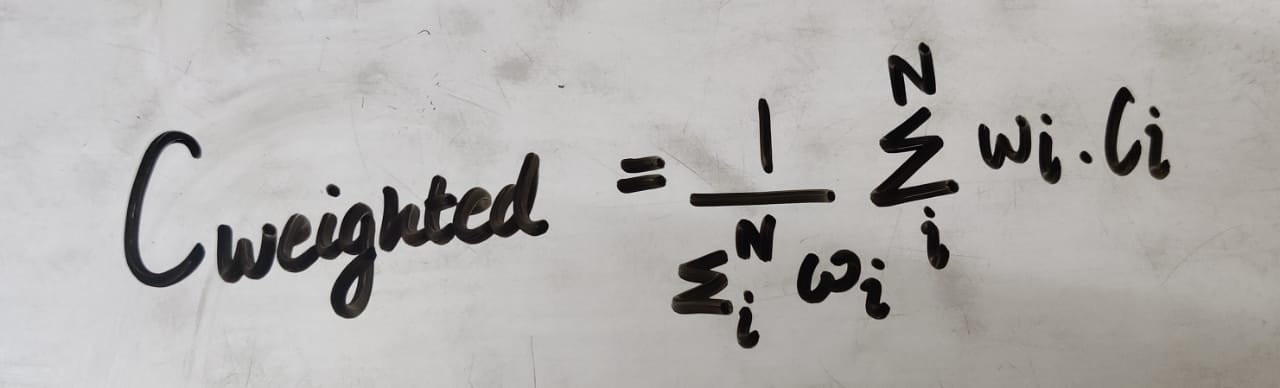 C_weighted = \frac{1}{\sum_{i}^{N} ω_i} \sum_{i}^{N} ω_i . C_i